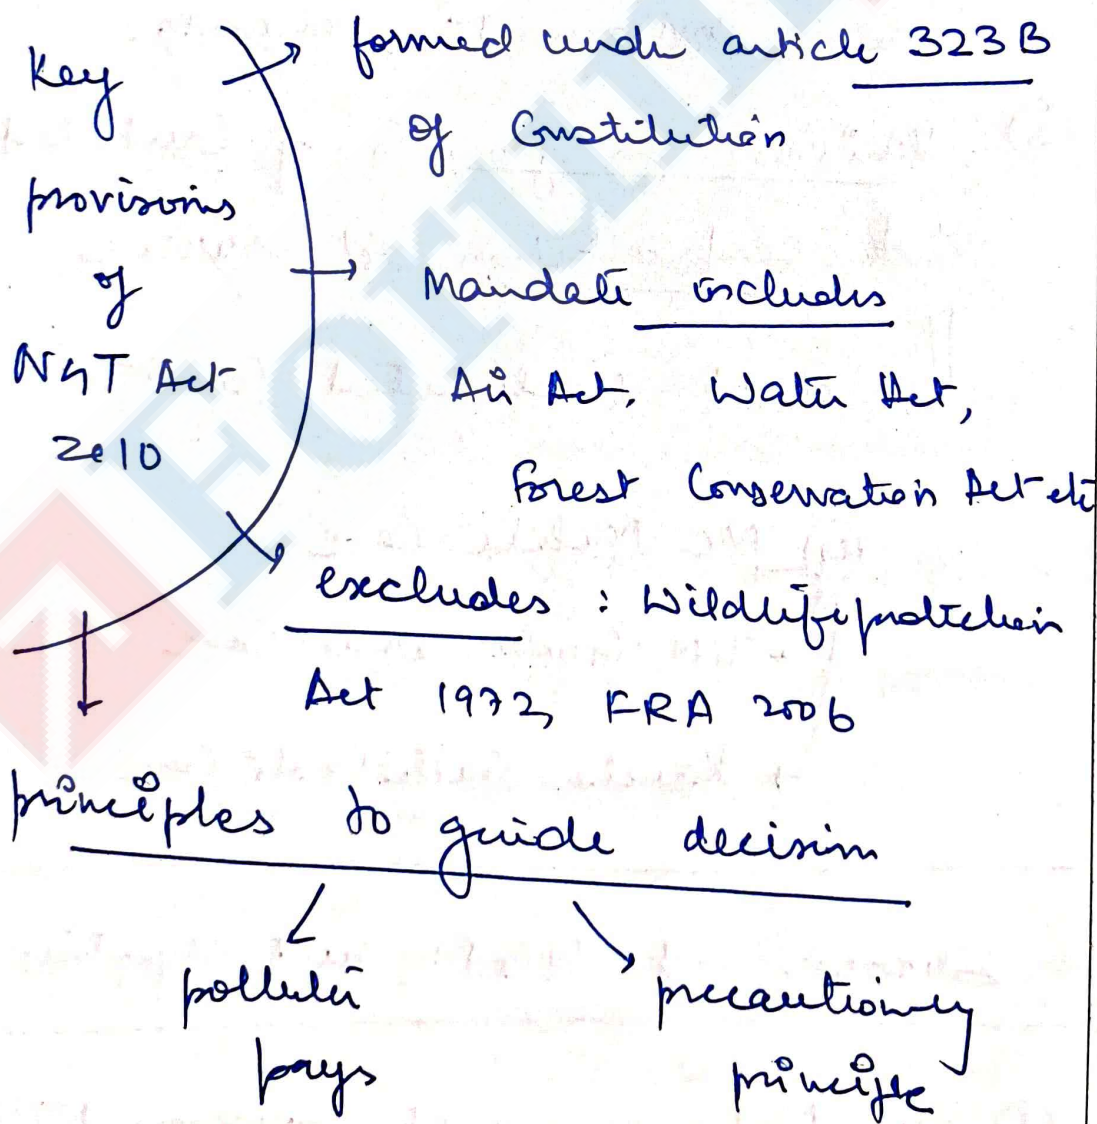 Key
provisions
of
NGT Act
2010
formed under article 323B
of Constitution
Mandate includes
Air Act, Water Act,
Forest Conservation Act etc
excludes : Wildlife protection
Act 1972, FRA 2006
principles to guide decision
polluter
pays
precautionary
principle
Forum